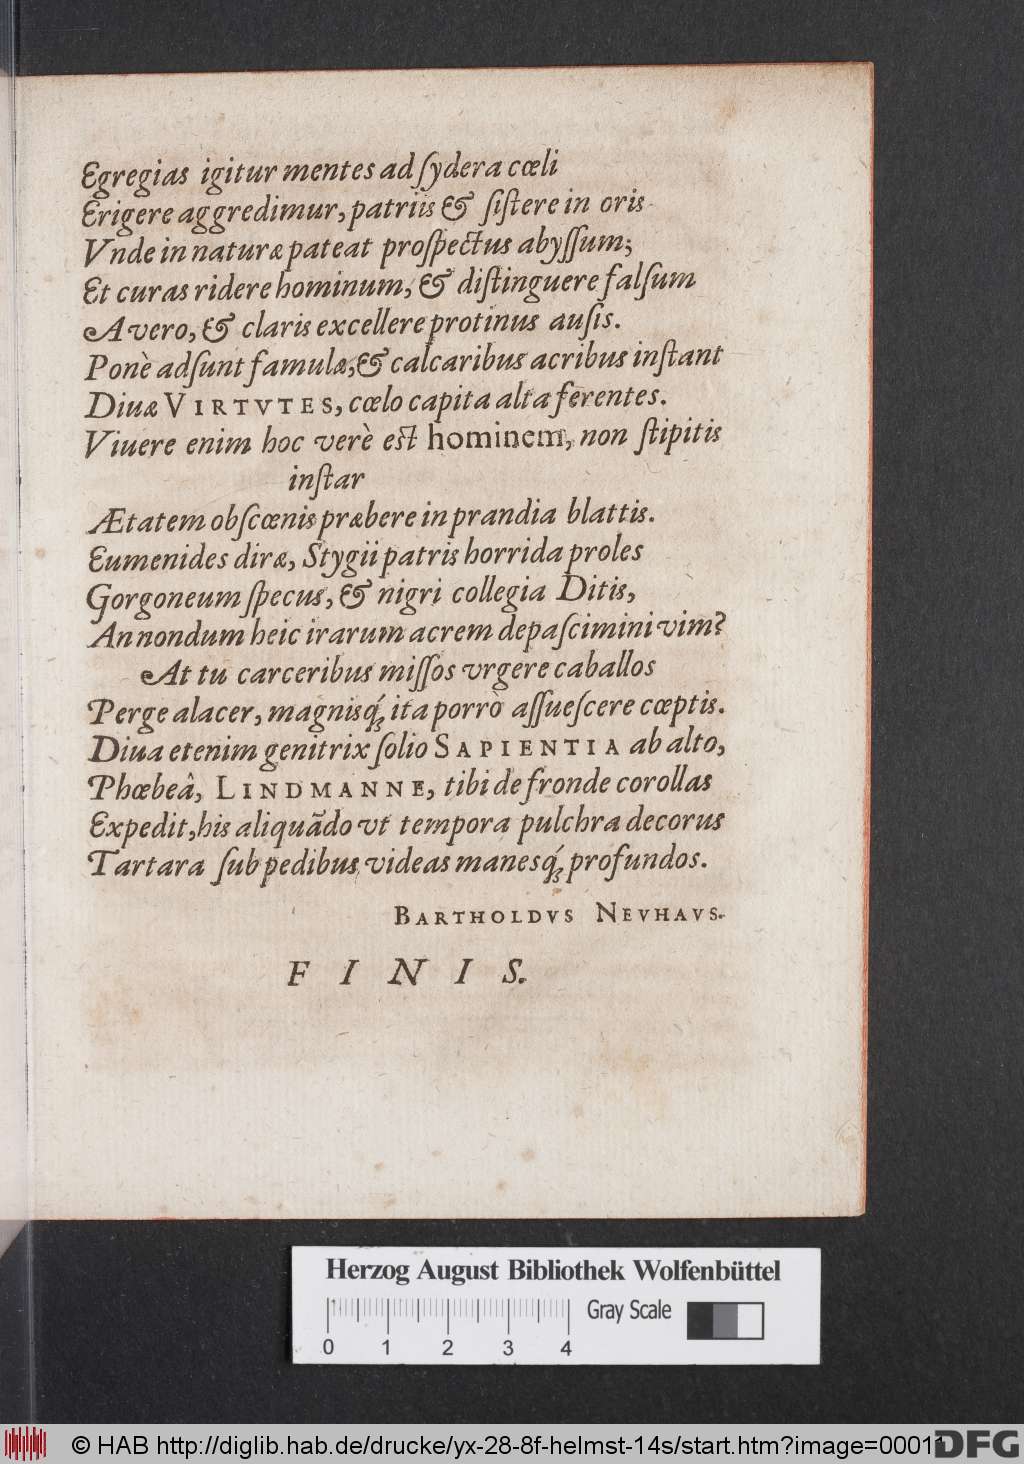 Egregias igitur mentes ad ſydera cœli
Erigere aggredimur, patriis & ſiſtere in oris
Vnde in naturæ pateat proſpectus abyſſum;
Et curas ridere hominum, & diſtinguere falſum
A vero, & claris excellere protinus auſis.
Ponè adſunt famulæ, & calcaribus acribus inſtant
Diuæ VIRTVTES, cœlo capita alta ferentes.
Viuere enim hoc verè eſt hominem, non ſtipitis
inſtar
Ætatem obſcœnis præbere in prandia blattis.
Eumenides diræ, Stygii patris horrida proles
Gorgoneum ſpecus, & nigri collegia Ditis,
An nondum heic irarum acrem depaſcimini vim?
At tu carceribus miſſos vrgere caballos
Perge alacer, magnisq́; ita porrò aſſueſcere cœptis.
Diua etenim genitrix ſolio SAPIENTIA ab alto,
Phœbeâ, LINDMANNE, tibi de fronde corollas
Expedit, his aliquãdo vt tempora pulchra decorus
Tartara ſub pedibus videas manesq́; profundos.
BARTHOLDVS NEVHAVS.
FINIS.
Herzog August Bibliothek Wolfenbüttel
Gray Scale
0 1 2 3 4
© HAB http://diglib.hab.de/drucke/yx-28-8f-helmst-14s/start.htm?image=00011
DFG